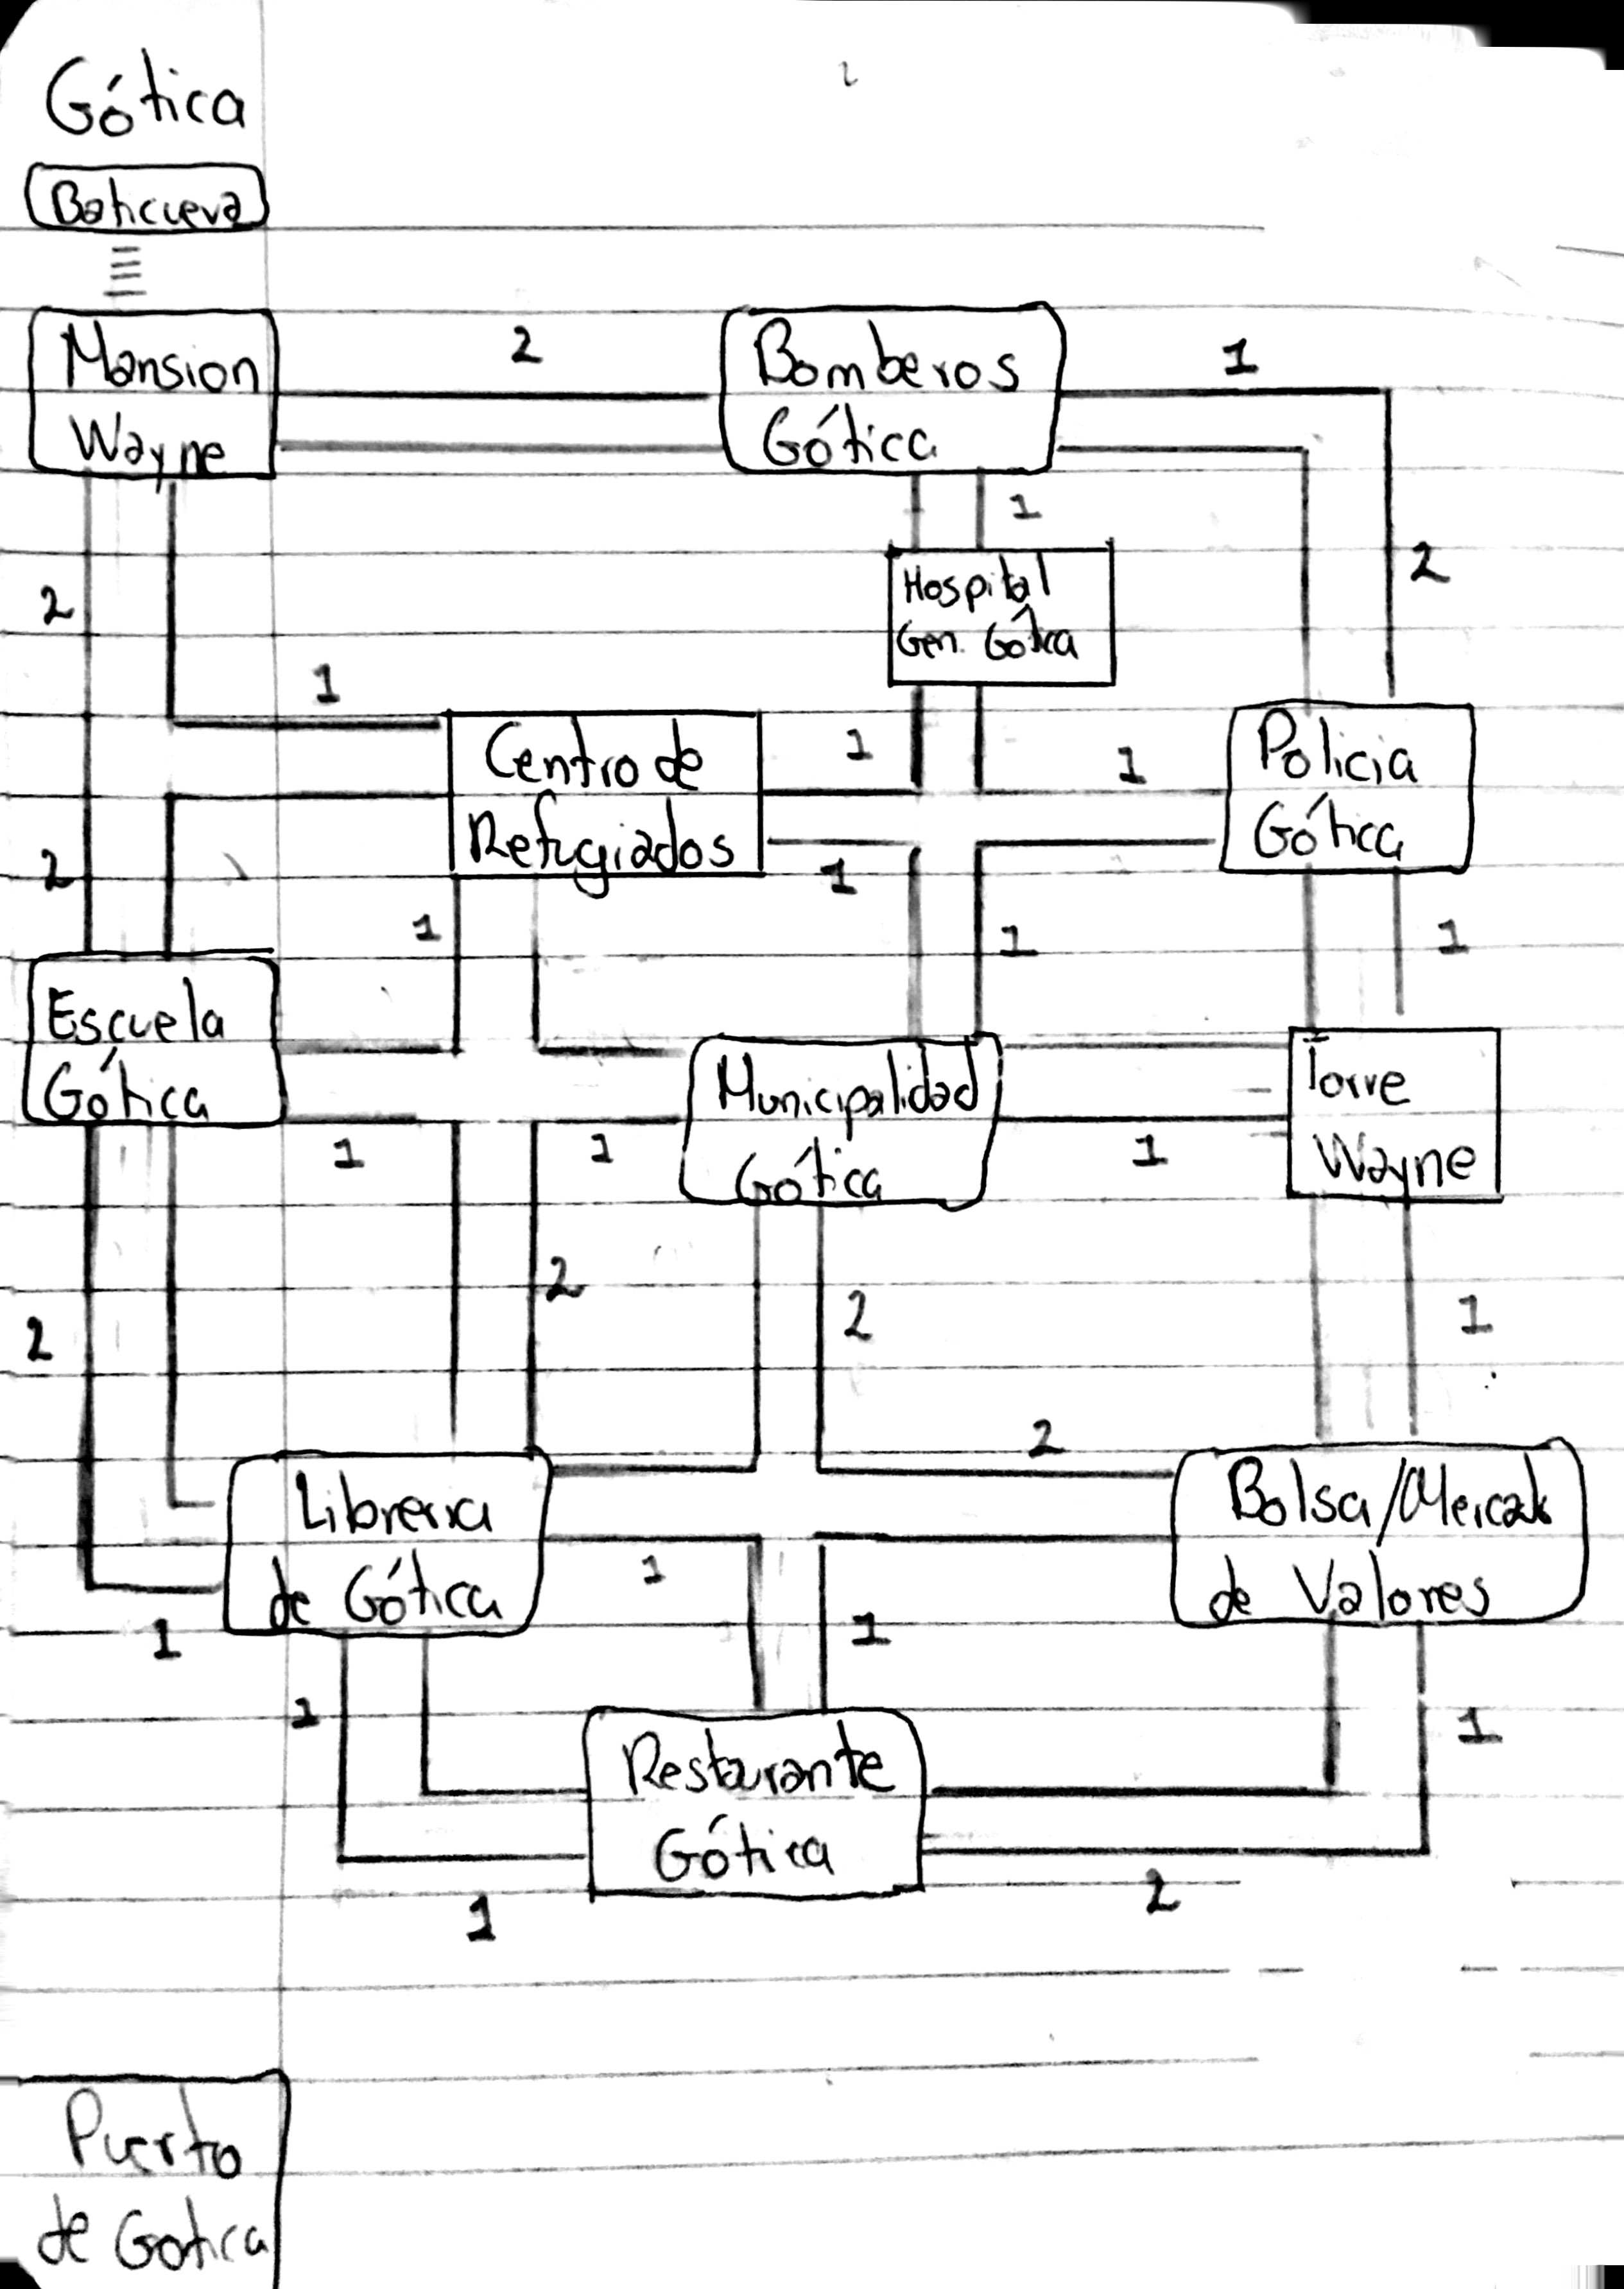 Gótica
Baticueva
Mansion
Wayne
2
Bomberos
Gótica
1
1
2
2
Hospital
Gen. Gótica
1
Centro de
Refugiados
1
1
1
Policia
Gótica
2
1
1
1
Escuela
Gótica
Municipalidad
Gótica
Torre
Wayne
1
1
1
2
2
2
1
Libreria
de Gótica
2
Bolsa/Mercado
de Valores
1
1
1
1
1
Restaurante
Gótica
1
2
Puerto
de Gotica